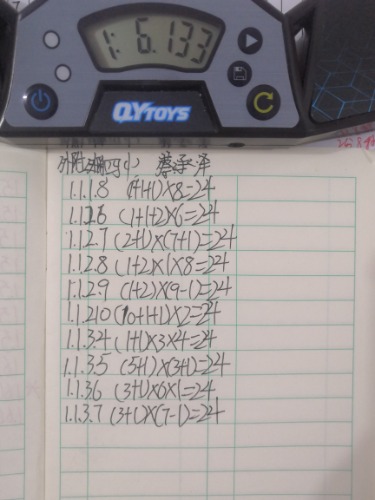 1: 6.133
QYTOYS
1.1.1.8 (1+1+1)×8=24
1.1.2.6 (1+1+2)×6=24
1.1.2.7 (2+1)×(7+1)=24
1.1.2.8 (1+2)×1×8=24
1.1.2.9 (1+2)×(9-1)=24
1.1.2.10 (10+1+1)×2=24
1.1.3.4 (1+1)×3×4=24
1.1.3.5 (5+1)×(3+1)=24
1.1.3.6 (3+1)×6×1=24
1.1.3.7 (3+1)×(7-1)=24